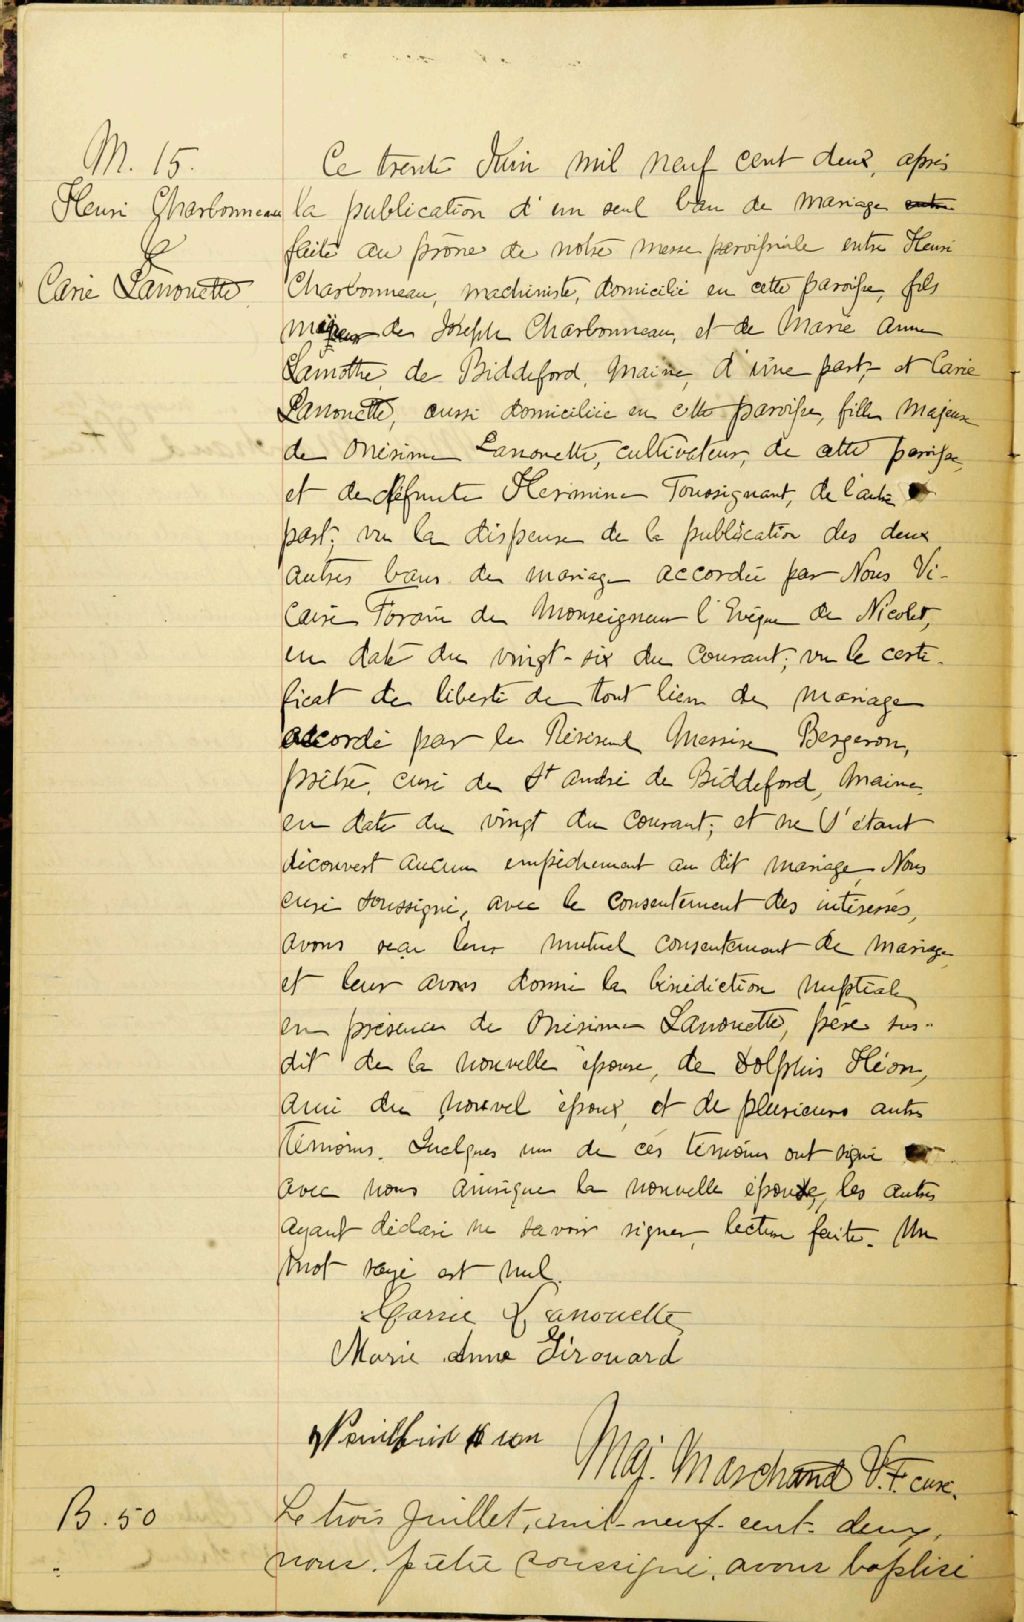 M. 15.
Henri Charbonneau
&
Carie Lanouette
Ce trente Juin mil neuf cent deux, après
la publication d'un seul ban de mariage entre
faite au prône de notre messe paroissiale entre Henri
Charbonneau, machiniste, domicilié en cette paroisse, fils
majeur de Joseph Charbonneau, et de Marie Anne
Lamothe, de Biddeford, Maine, d'une part, et Carie
Lanouette, aussi domiciliée en cette paroisse, fille majeure
de Onésime Lanouette, cultivateur, de cette paroisse,
et de défunte Hermine Toussignant, de l'autre
part; vu la dispense de la publication des deux
autres bans de mariage accordée par Nous Vi-
caire Forain de Monseigneur l'Evêque de Nicolet,
en date du vingt-six du courant; vu le certi-
ficat de liberté de tout lien de mariage
accordé par le Révérend Messire Bergeron,
prêtre, curé de St André de Biddeford, Maine,
en date du vingt du courant; et ne s'étant
découvert aucun empêchement au dit mariage, Nous
curé soussigné, avec le consentement des intéressés,
avons reçu leur mutuel consentement de mariage
et leur avons donné la bénédiction nuptiale
en présence de Onésime Lanouette, père sus-
dit de la nouvelle épouse, de Dolphis Héon,
ami du nouvel époux, et de plusieurs autres
témoins. Quelques uns de ces témoins ont signé
avec nous ainsique la nouvelle épouse, les autres
ayant déclaré ne savoir signer, lecture faite. Un
mot rayé est nul.
Carrie Lanouette
Marie Anne Girouard
Maj. Marchand V.F. curé.
B. 50
Le trois Juillet, mil-neuf-cent-deux,
nous, prêtre soussigné, avons baptisé